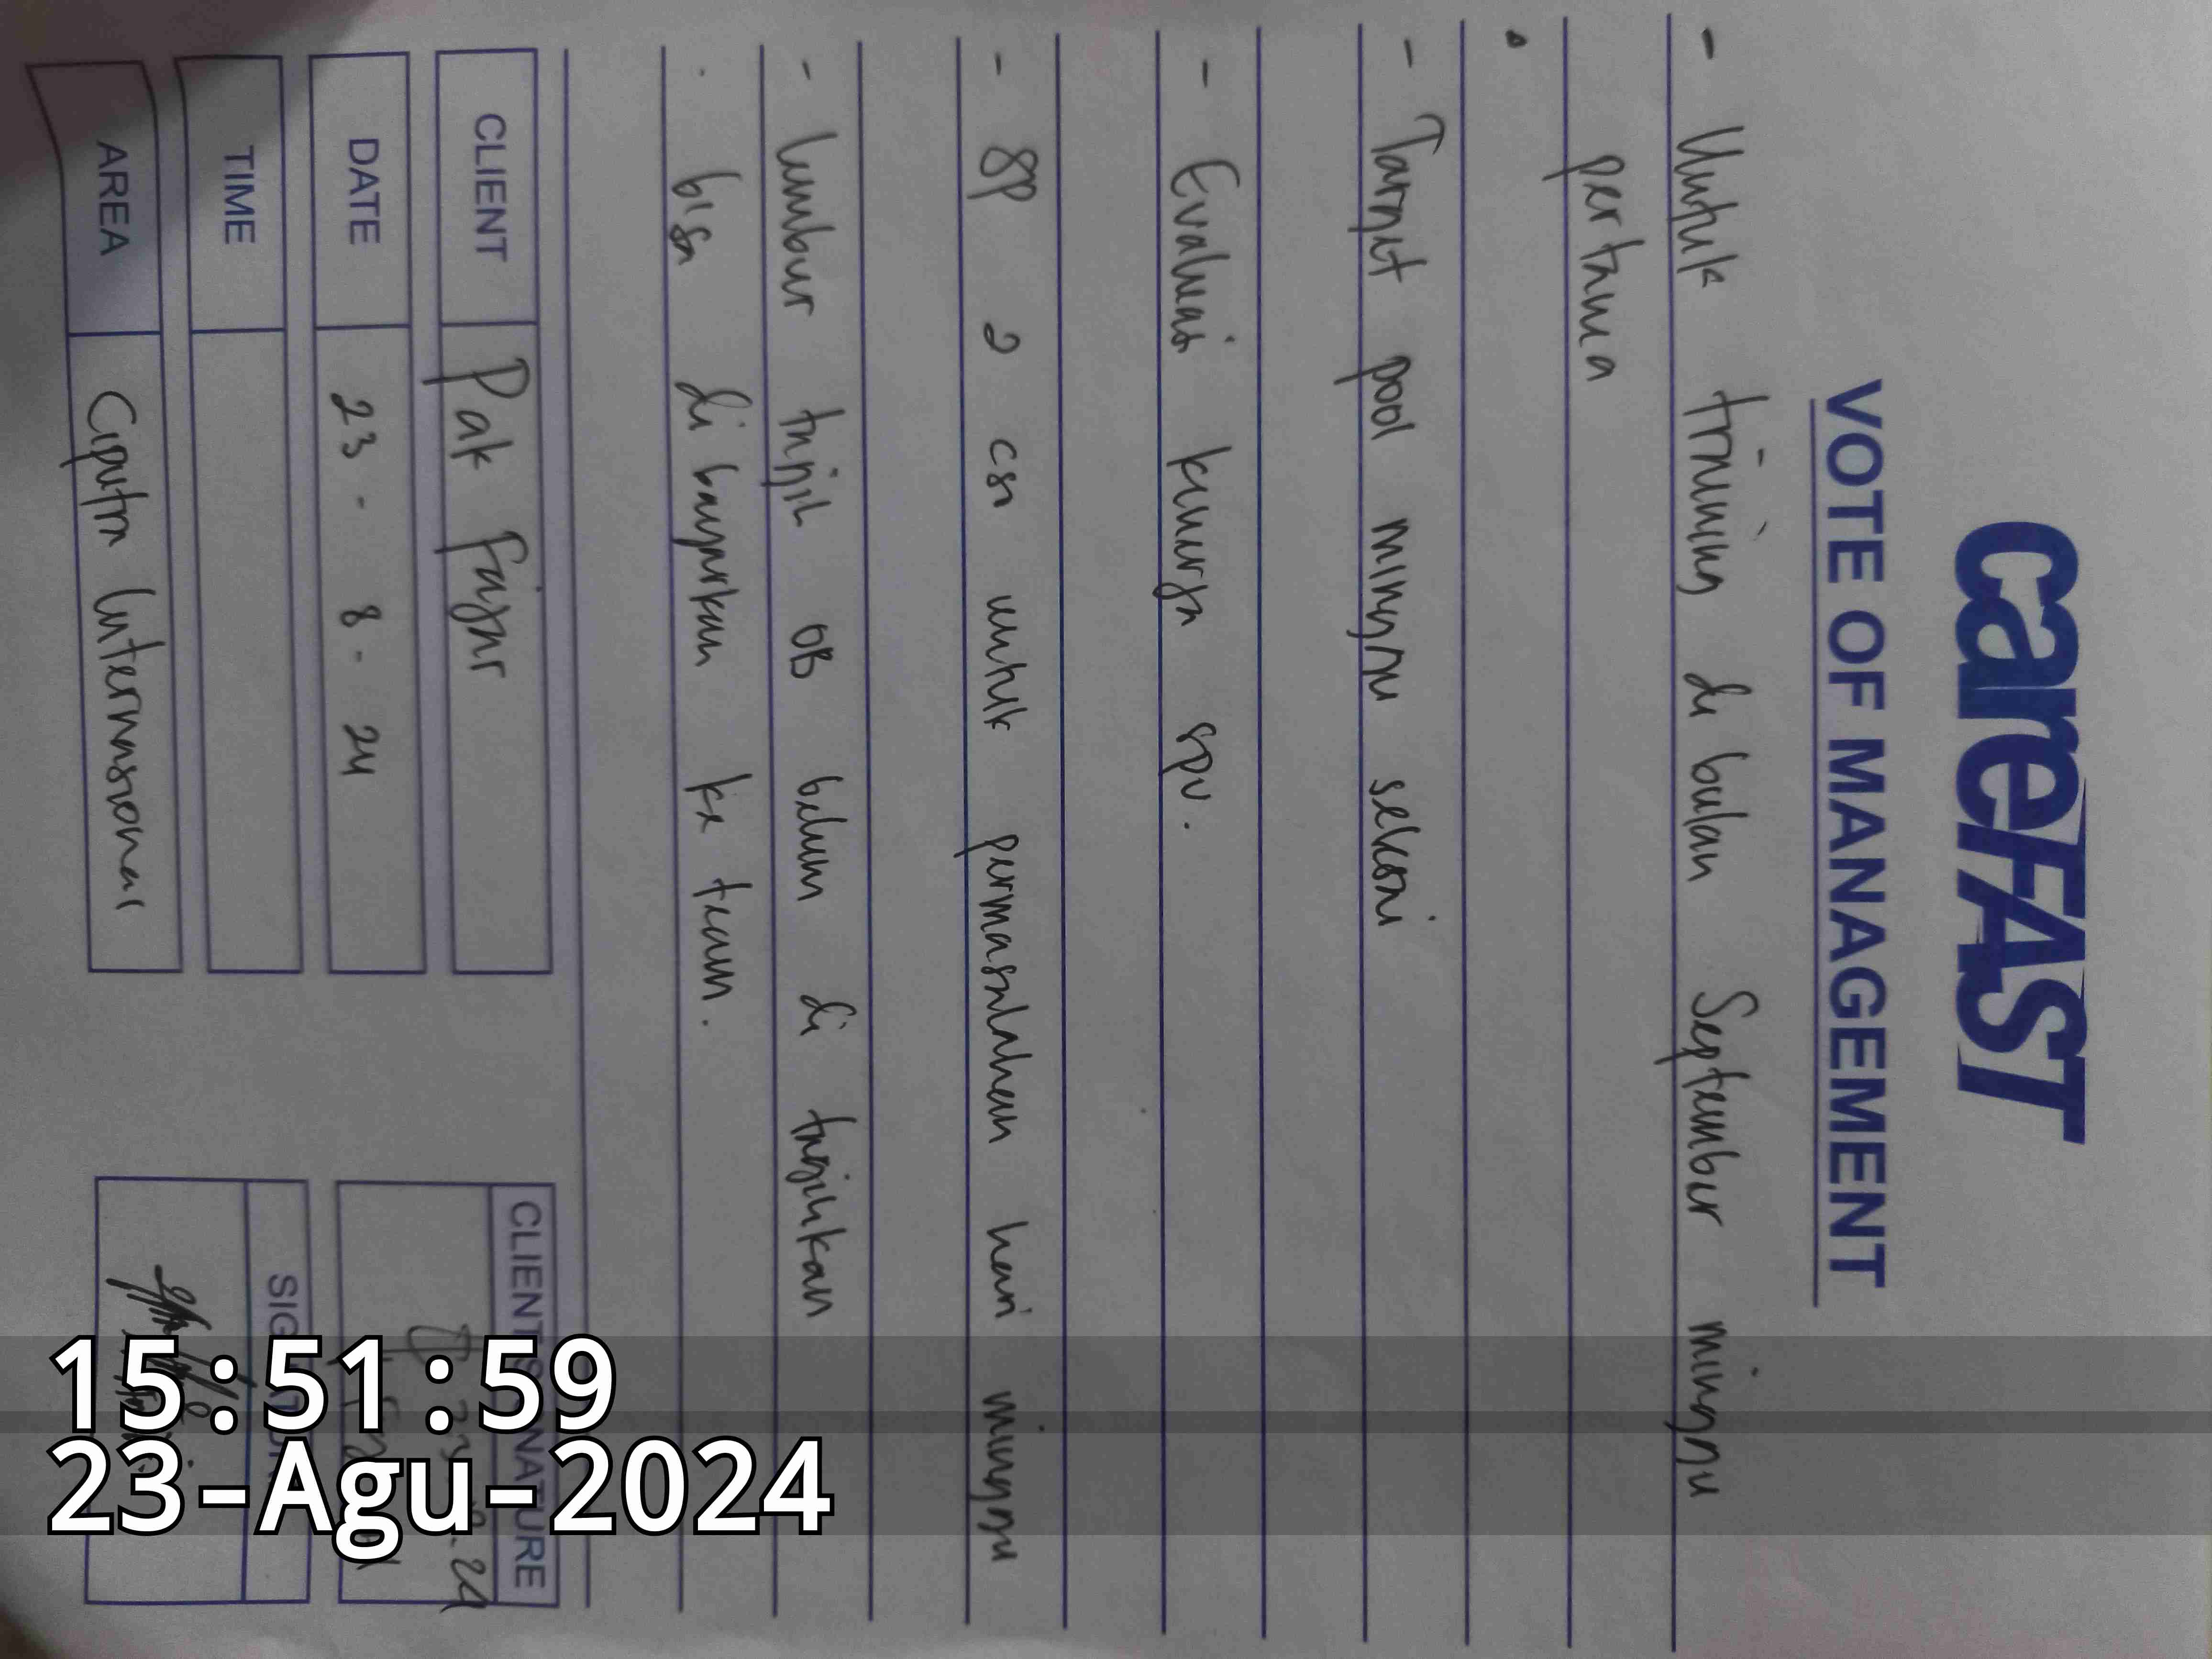 careFAST
VOTE OF MANAGEMENT
- Untuk training di bulan September minggu
pertama
- Target pool minggu
- Evaluasi kinerja spv.
- SP 2 csr untuk permasalahan hari minggu
- lembur tagih OB belum di tagihkan
bisa di bayarkan ke team.
CLIENT Pak Fajar
DATE 23 - 8 - 24
TIME
AREA Ciputra Internasional
CLIENT SIGNATURE
15:51:59
23-Agu-2024